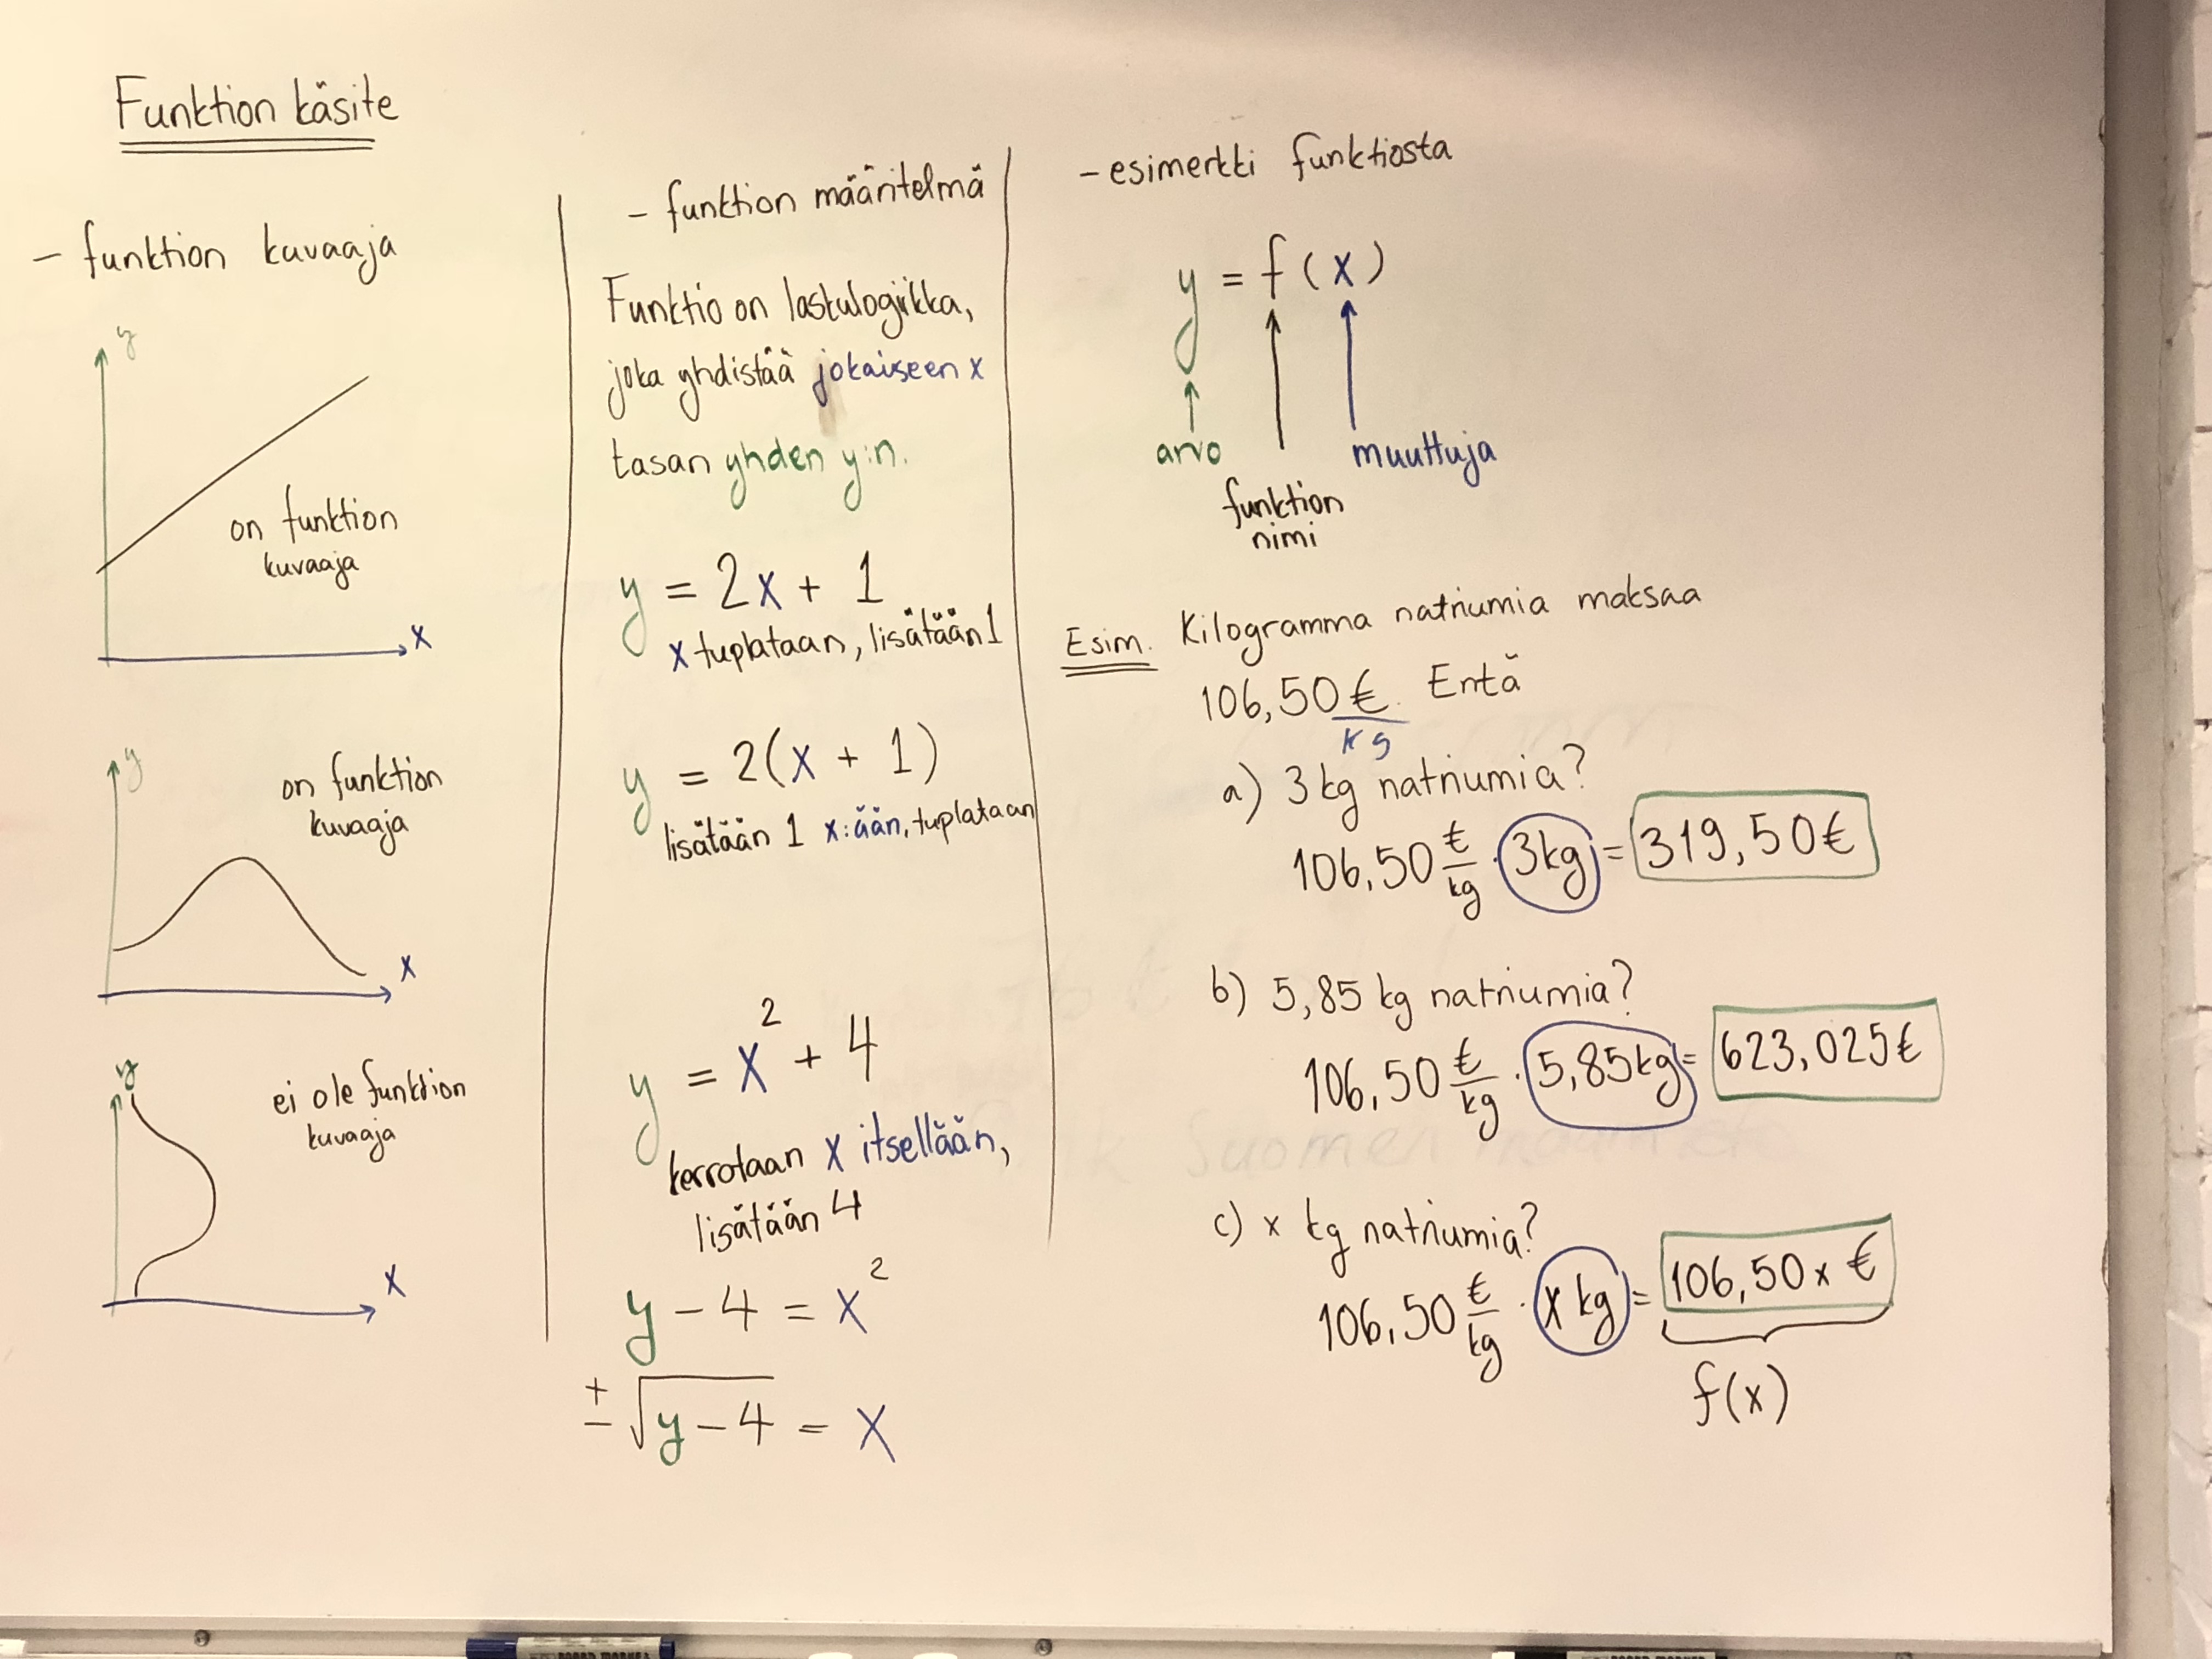 Funktion käsite
- funktion kuvaaja
y
on funktion
kuvaaja
x
y
on funktion
kuvaaja
x
y
ei ole funktion
kuvaaja
x
- funktion määritelmä
Funktio on laskulogiikka,
joka yhdistää jokaiseen x
tasan yhden y:n.
y = 2x + 1
x tuplataan, lisätään 1
y = 2(x + 1)
lisätään 1 x:ään, tuplataan
y = x² + 4
kerrotaan x itsellään,
lisätään 4
y - 4 = x²
± √(y - 4) = x
- esimerkki funktiosta
y = f(x)
arvo
muuttuja
funktion
nimi
Esim. Kilogramma natriumia maksaa
106,50 €/kg. Entä
a) 3 kg natriumia?
106,50 €/kg · 3kg = 319,50 €
b) 5,85 kg natriumia?
106,50 €/kg · 5,85kg = 623,025 €
c) x kg natriumia?
106,50 €/kg · x kg = 106,50x €
f(x)